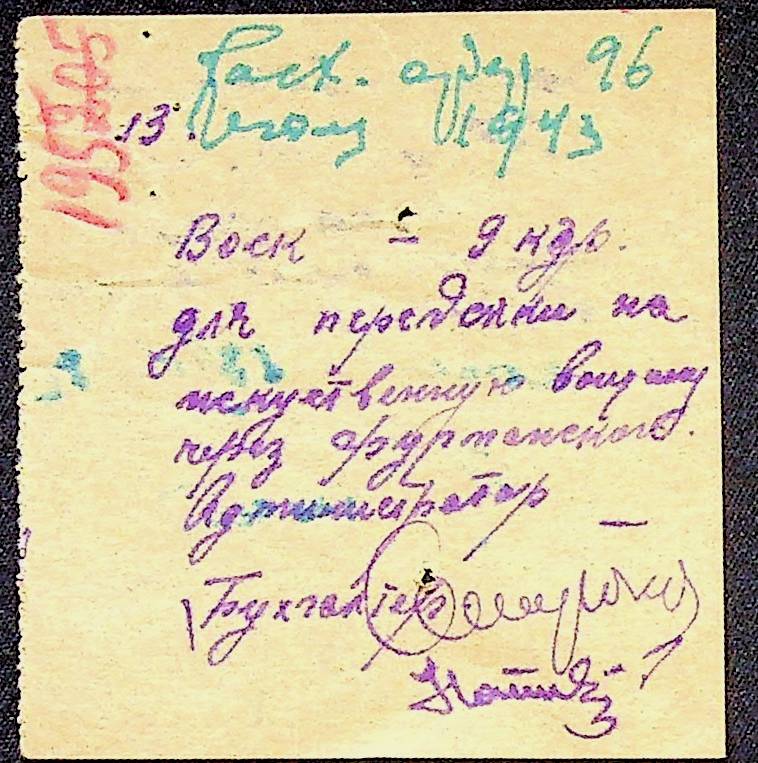 195205
Расх. ордер 96
13. 1943
Воск – 9 кгр.
для переделки на
искуственную вощину
через Фурманского.
Администратор –
Бухгалтер